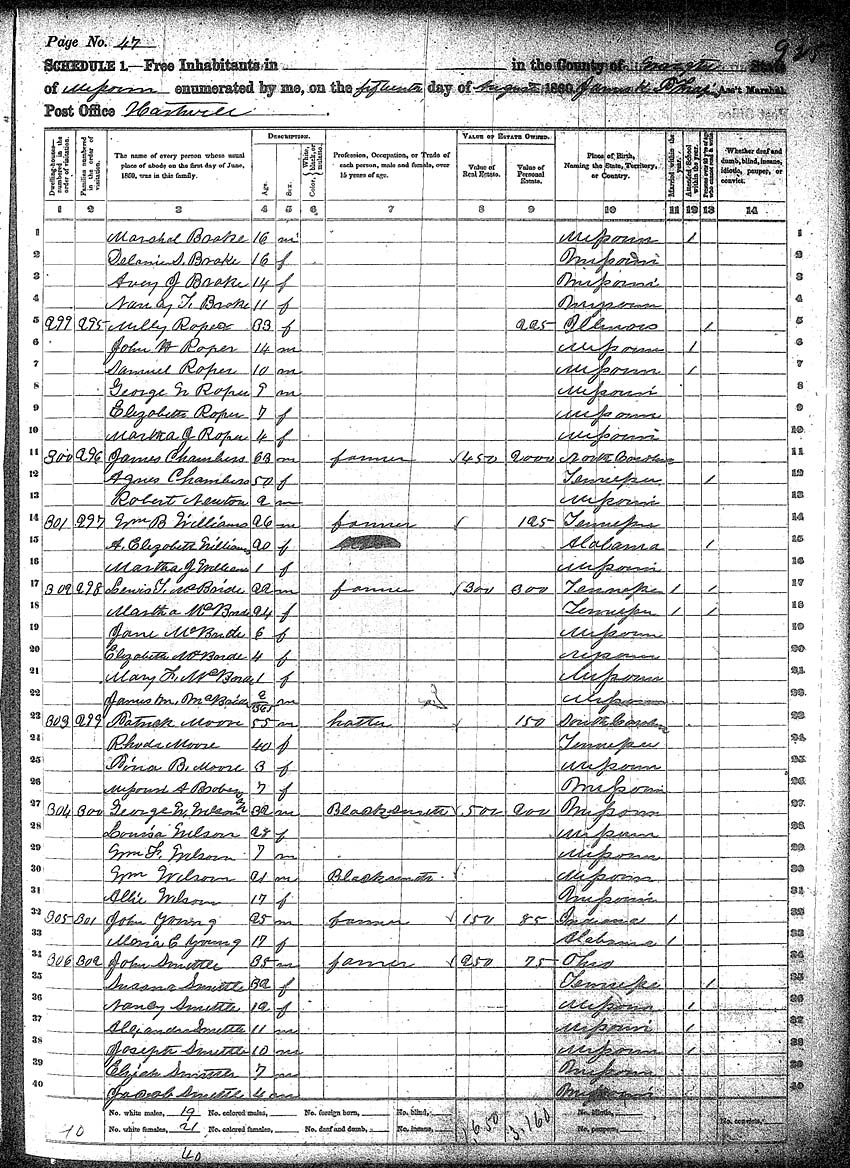 Page No. 47
SCHEDULE 1.—Free Inhabitants in in the County of State
of Missouri enumerated by me, on the fifteenth day of August 1860. James Ass't Marshal.
Post Office Hartville
DESCRIPTION. VALUE OF ESTATE OWNED.
Dwelling-houses—numbered in the order of visitation. Families numbered in the order of visitation. The name of every person whose usual place of abode on the first day of June, 1860, was in this family. Age. Sex. Color, {White, black, or mulatto. Profession, Occupation, or Trade of each person, male and female, over 15 years of age. Value of Real Estate. Value of Personal Estate. Place of Birth, Naming the State, Territory, or Country. Married within the year. Attended School within the year. Whether deaf and dumb, blind, insane, idiotic, pauper, or convict.
1 2 3 4 5 6 7 8 9 10 11 12 13 14
1 Marshal Brake 16 m Missouri 1 1
2 Brake 16 f Missouri 2
3 Avey J Brake 14 f Missouri 3
4 Nancy T. Brake 11 f Missouri 4
5 299 295 Milly Roper 33 f 225 Illinois 1 5
6 John W Roper 14 m Missouri 1 6
7 Samuel Roper 10 m Missouri 1 7
8 George W Roper 9 m Missouri 8
9 Elizabeth Roper 7 f Missouri 9
10 Martha J Roper 4 f Missouri 10
11 300 296 James Chambers 63 m farmer 450 2000 North Carolina 11
12 Agnes Chambers 50 f Tennessee 1 12
13 Robert Newton 2 m Missouri 13
14 301 297 Wm B Williams 26 m farmer 125 Tennessee 14
15 A. Elizabeth Williams 20 f Alabama 1 15
16 Martha J Williams 1 f Missouri 16
17 302 298 Lewis T. McBride 22 m farmer 300 300 Tennessee 1 1 17
18 Martha McBride 24 f Tennessee 1 1 18
19 Jane McBride 6 f Missouri 19
20 Elizabeth McBride 4 f Missouri 20
21 Mary L. McBride 1 f Missouri 21
22 James M. McBride m Missouri 22
23 303 299 Patrick Moore 55 m hatter 150 South Carolina 23
24 Rhoda Moore 40 f Tennessee 24
25 B. Moore 3 f Missouri 25
26 Missouri A 7 f Missouri 26
27 304 300 George W. Wilson 32 m Blacksmith 500 200 Missouri 27
28 Louisa Wilson 28 f Missouri 28
29 Wm F. Wilson 7 m Missouri 29
30 Wm Wilson 21 m Blacksmith Missouri 30
31 Allie Wilson 17 f Missouri 31
32 305 301 John Young 25 m farmer 150 85 Indiana 1 32
33 E Young 17 f Alabama 1 33
34 306 302 John Smittle 35 m farmer 250 75 Ohio 34
35 Susana Smittle 32 f Tennessee 1 35
36 Nancy Smittle 12 f Missouri 1 36
37 Alexander Smittle 11 m Missouri 1 37
38 Joseph Smittle 10 m Missouri 1 38
39 Elijah Smittle 7 m Missouri 39
40 Jacob Smittle 4 m Missouri 40
No. white males, 19 No. colored males, No. foreign born, No. blind, 1650 3,160 No. idiotic,
10 No. white females, 21 No. colored females, No. deaf and dumb, No. insane, No. paupers, No. convicts,
40